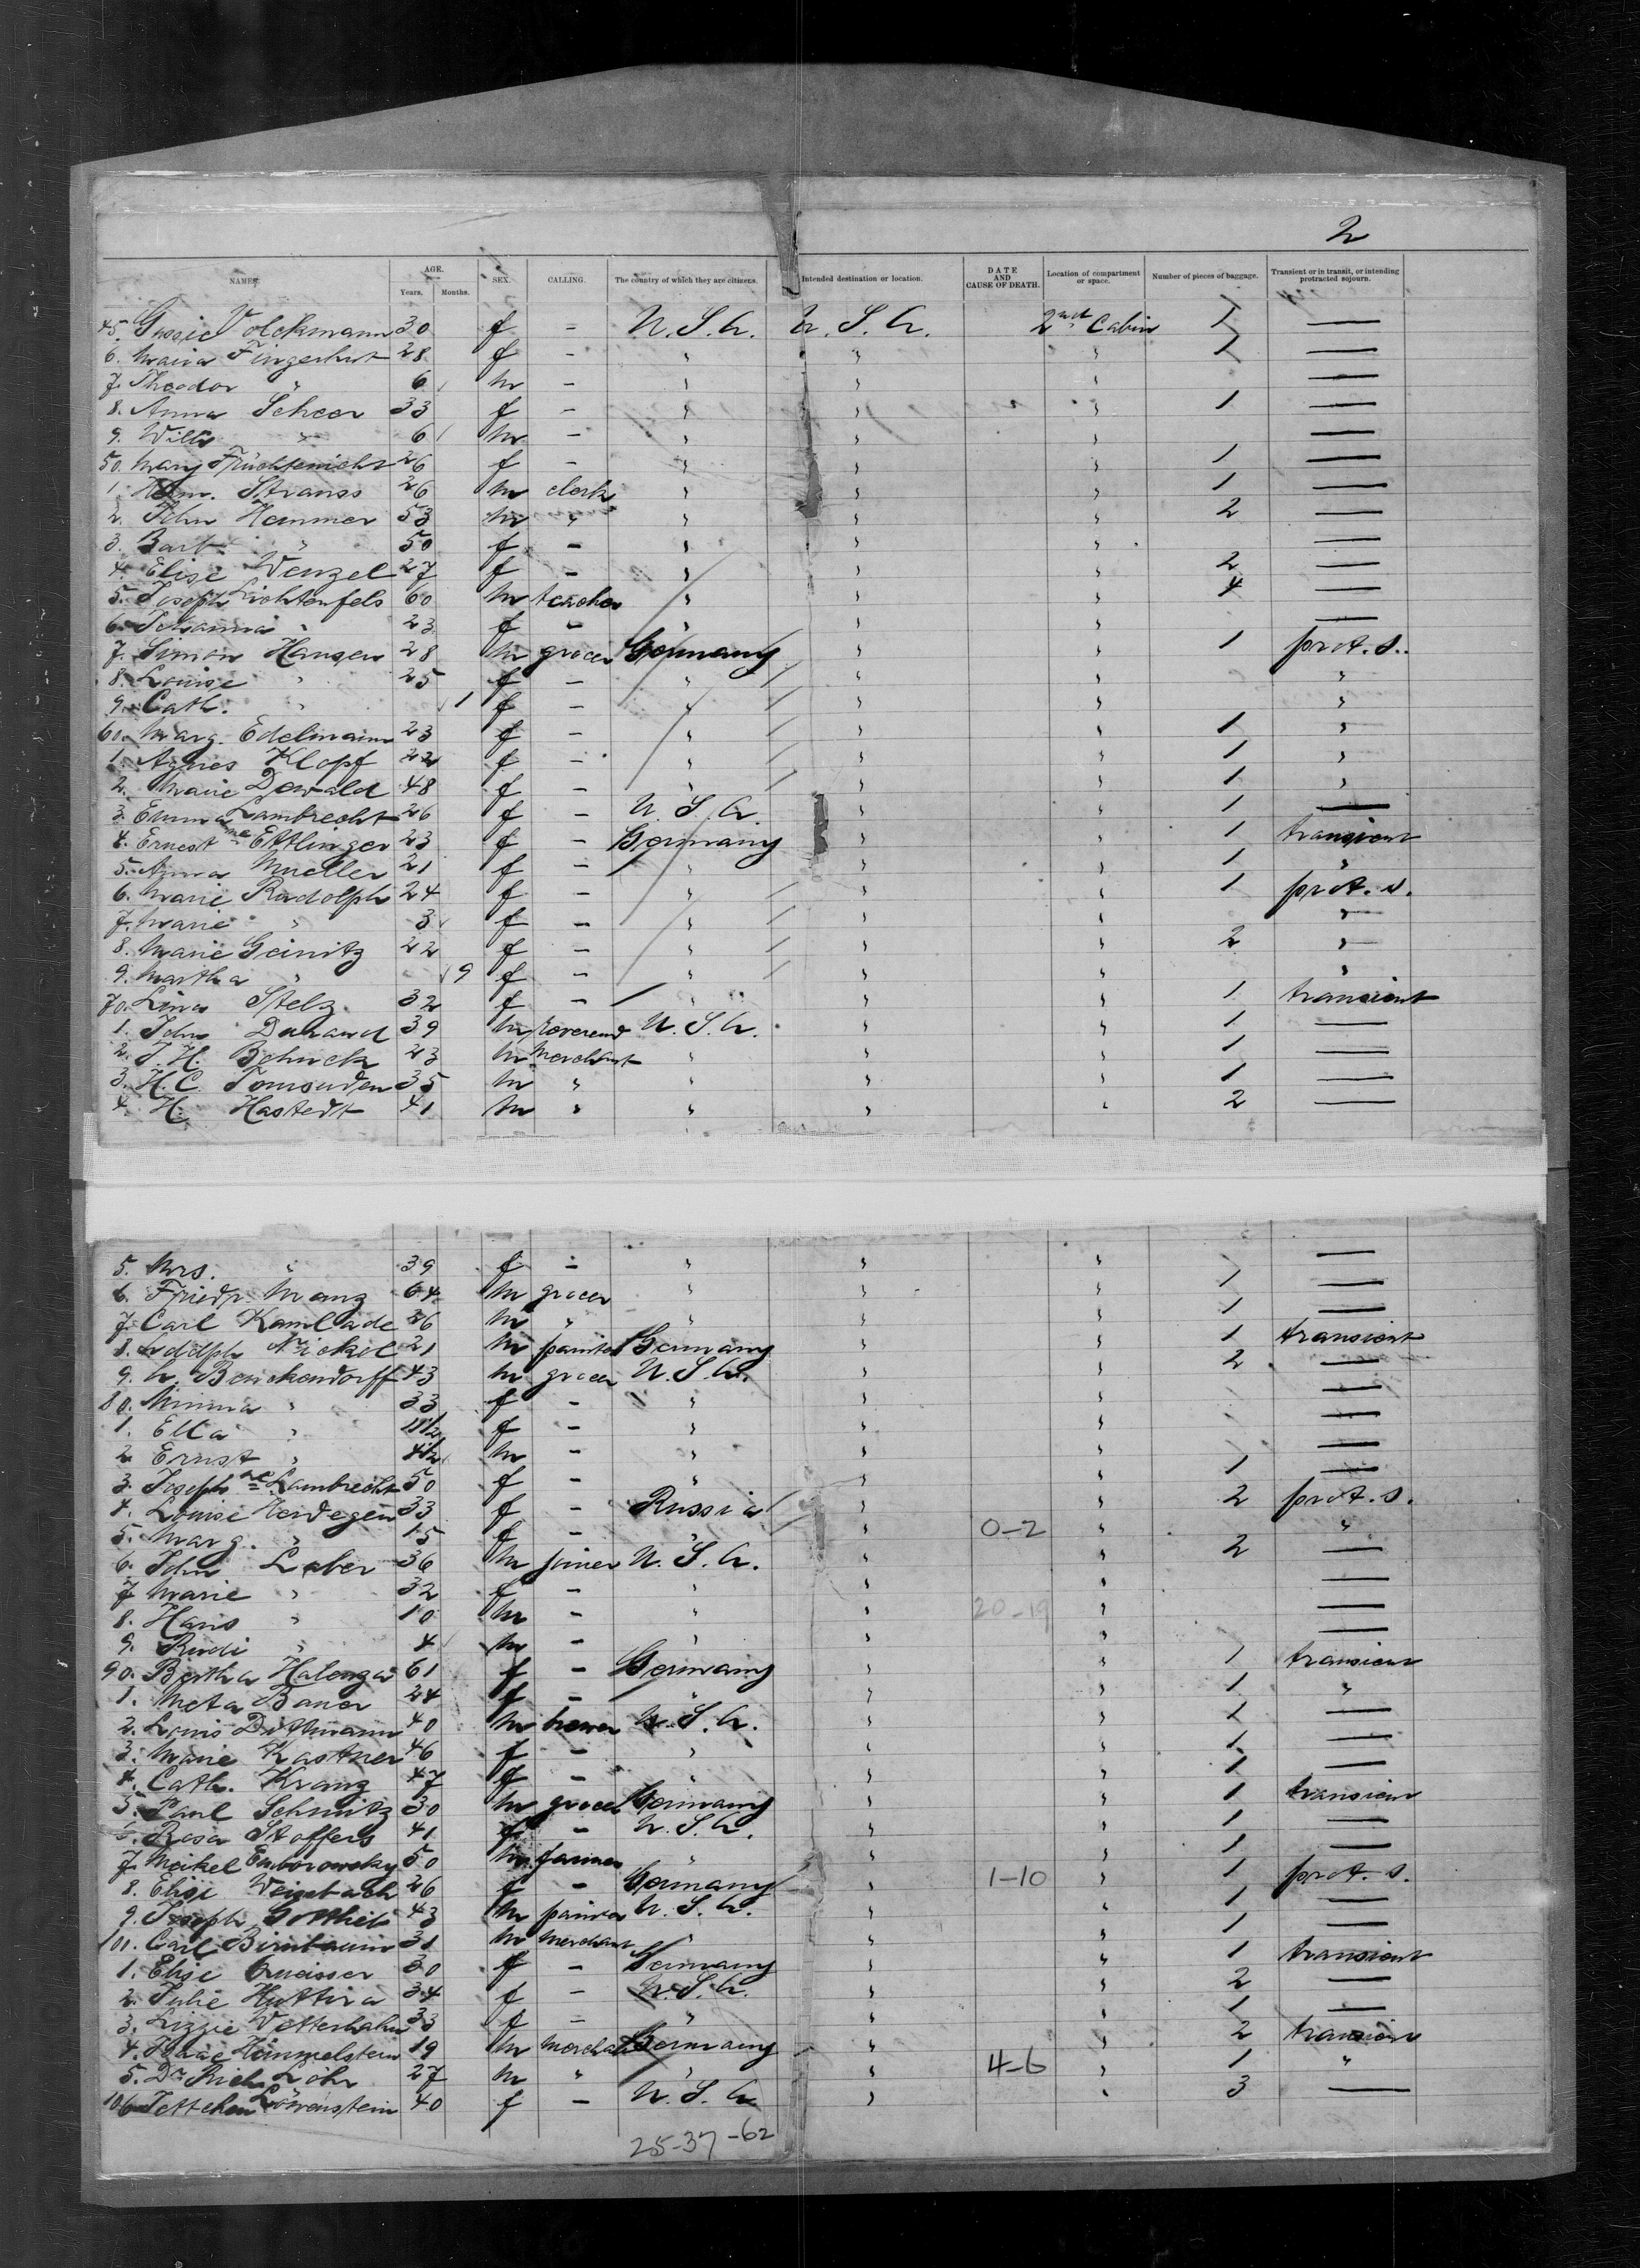 2
NAMES. AGE. Years. Months. SEX. CALLING. The country of which they are citizens. Intended destination or location. DATE AND CAUSE OF DEATH. Location of compartment or space. Number of pieces of baggage. Transient or in transit, or intending protracted sojourn.
45. Gussie Volckmann 30 f - U.S.A. U.S.A. 2nd Cabin 1 —
6. Maria Fingerhut 28 f - " " " 1 —
7. Theodor " 6 m - " " " —
8. Anna Scheer 33 f - " " " 1 —
9. Willy " 6 m - " " " —
50. Mary Früchtenicht 26 f - " " " 1 —
1. Herm. Strauss 26 m clerk " " " 1 —
2. John Hemmer 53 m " " " " 2 —
3. Barb. " 50 f - " " " —
4. Elise Wenzel 27 f - " " " 2 —
5. Joseph Lichtenfels 60 m teacher " " " 4 —
6. Susanna " 23 f - " " " —
7. Simon Hansen 28 m grocer Germany " " 1 prot. s.
8. Louise " 25 f - " " " "
9. Cath. " 1 f - " " " "
60. Marg. Edelmann 23 f - " " " 1 "
1. Agnes Klopf 22 f - " " " 1 "
2. Marie Dewald 48 f - " " " 1 "
3. Emma Lambrecht 26 f - U.S.A. " " 1 —
4. Ernestine Ettlinger 23 f - Germany " " 1 transient
5. Anna Mueller 21 f - " " " 1 "
6. Marie Rudolph 24 f - " " " 1 prot. s.
7. Marie " 3 f - " " " "
8. Marie Geinitz 22 f - " " " 2 "
9. Martha " 9 f - " " " "
70. Lina Stelz 32 f - " " " 1 transient
1. John Durand 39 m reverend U.S.A. " " 1 —
2. J. H. Schuck 23 m merchant " " " 1 —
3. H. C. Tomsuden 35 m " " " " 1 —
4. H. Hastedt 41 m " " " " 2 —
5. Mrs. " 39 f - " " " —
6. Friedr. Manz 64 m grocer " " " 1 —
7. Carl Kamlade 36 m " " " " 1 —
8. Adolph Nickel 21 m painter Germany " " 1 transient
9. A. Benckendorff 43 m grocer U.S.A. " " 2 —
80. Minna " 33 f - " " " —
1. Ella " 11 1/2 f - " " " —
2. Ernst " 4 1/2 m - " " " —
3. Josephine Lambrecht 50 f - " " " 1 —
4. Louise Herdegen 33 f - Russia " " 2 prot. s.
5. Marg. " 15 f - " " 0-2 " "
6. John Leber 36 m joiner U.S.A. " " 2 —
7. Marie " 32 f - " " " —
8. Hans " 10 m - " " 20-19 " —
9. Rudi " 4 m - " " " —
90. Bertha Halenza 61 f - Germany " " 1 transient
1. Meta Bauer 24 f - " " " 1 "
2. Louis Dittmann 40 m brewer U.S.A. " " 1 —
3. Marie Kastner 46 f - " " " 1 —
4. Cath. Kranz 47 f - " " " 1 —
5. Paul Schmitz 30 m grocer Germany " " 1 transient
6. Rosa Stoffers 41 f - U.S.A. " " 1 —
7. Meikel 50 m farmer " " " 1 —
8. Elise Weissbach 26 f - Germany " 1-10 " 1 prot. s.
9. Joseph Gottlieb 43 m painter U.S.A. " " 1 —
100. Carl Birnbaum 31 m merchant " " " 1 —
1. Elise 30 f - Germany " " 1 transient
2. Julie Huttira 34 f - U.S.A. " " 2 —
3. Lizzie Wetterhahn 33 f - " " " 1 —
4. Isaac Himmelstern 19 m merchant Germany " " 2 transient
5. Dr. Rich. Löhr 27 m " " " 4-6 " 1 "
106 Jettchen Löwenstein 40 f - U.S.A. " " 3 —
25-37-62